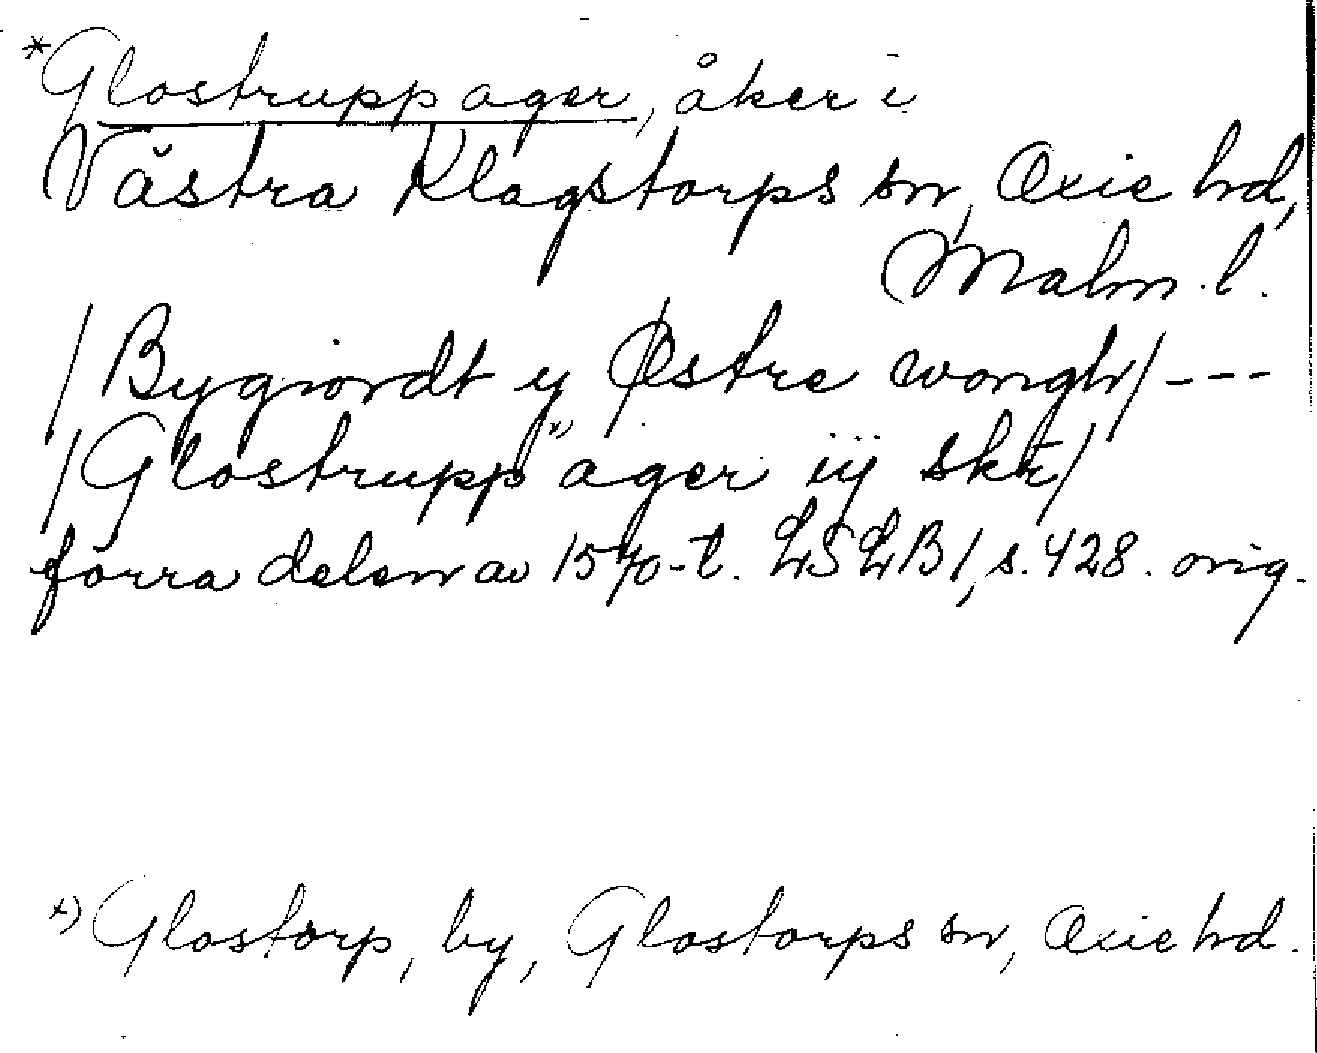 *Glostrupp ager, åker i
Västra Klagstorps sn, Oxie hd,
Malm. l.
/Bygiordt y Østre wongh/ ---
/Glostrupp" ager iij skr/
förra delen av 1570-t. LSLB1, s. 428. orig.
x) Glostorp, by, Glostorps sn, Oxie hd.